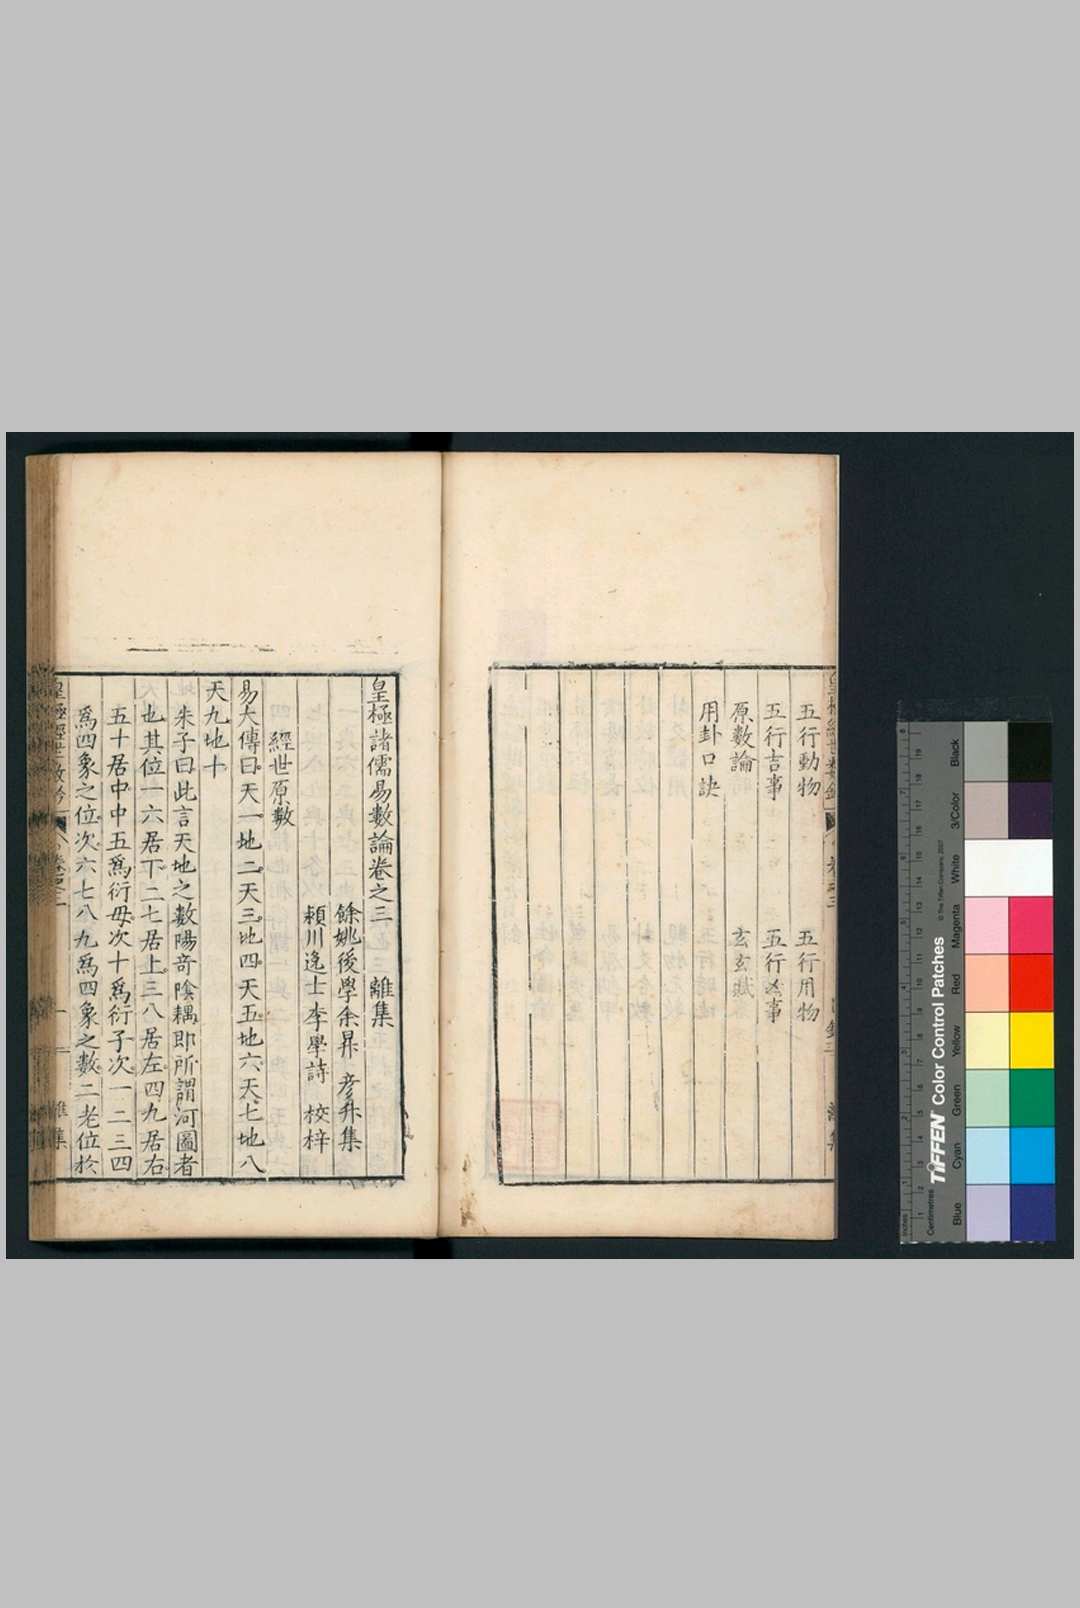 五行動物　五行用物
五行吉事　五行凶事
原數論　玄玄賦
用卦口訣
皇極諸儒易數論卷之三　離集
餘姚後學余昇　彥升集
潁川逸士李學詩　校梓
經世原數
易大傳曰天一地二天三地四天五地六天七地八
天九地十
朱子曰此言天地之數陽奇陰耦即所謂河圖者
也其位一六居下二七居上三八居左四九居右
五十居中中五爲衍母次十爲衍子次一二三四
爲四象之位次六七八九爲四象之數二老位於
皇極經世數
集
TIFFEN Color Control Patches
© The Tiffen Company, 2007
Inches
Centimetres
Blue
Cyan
Green
Yellow
Red
Magenta
White
3/Color
Black